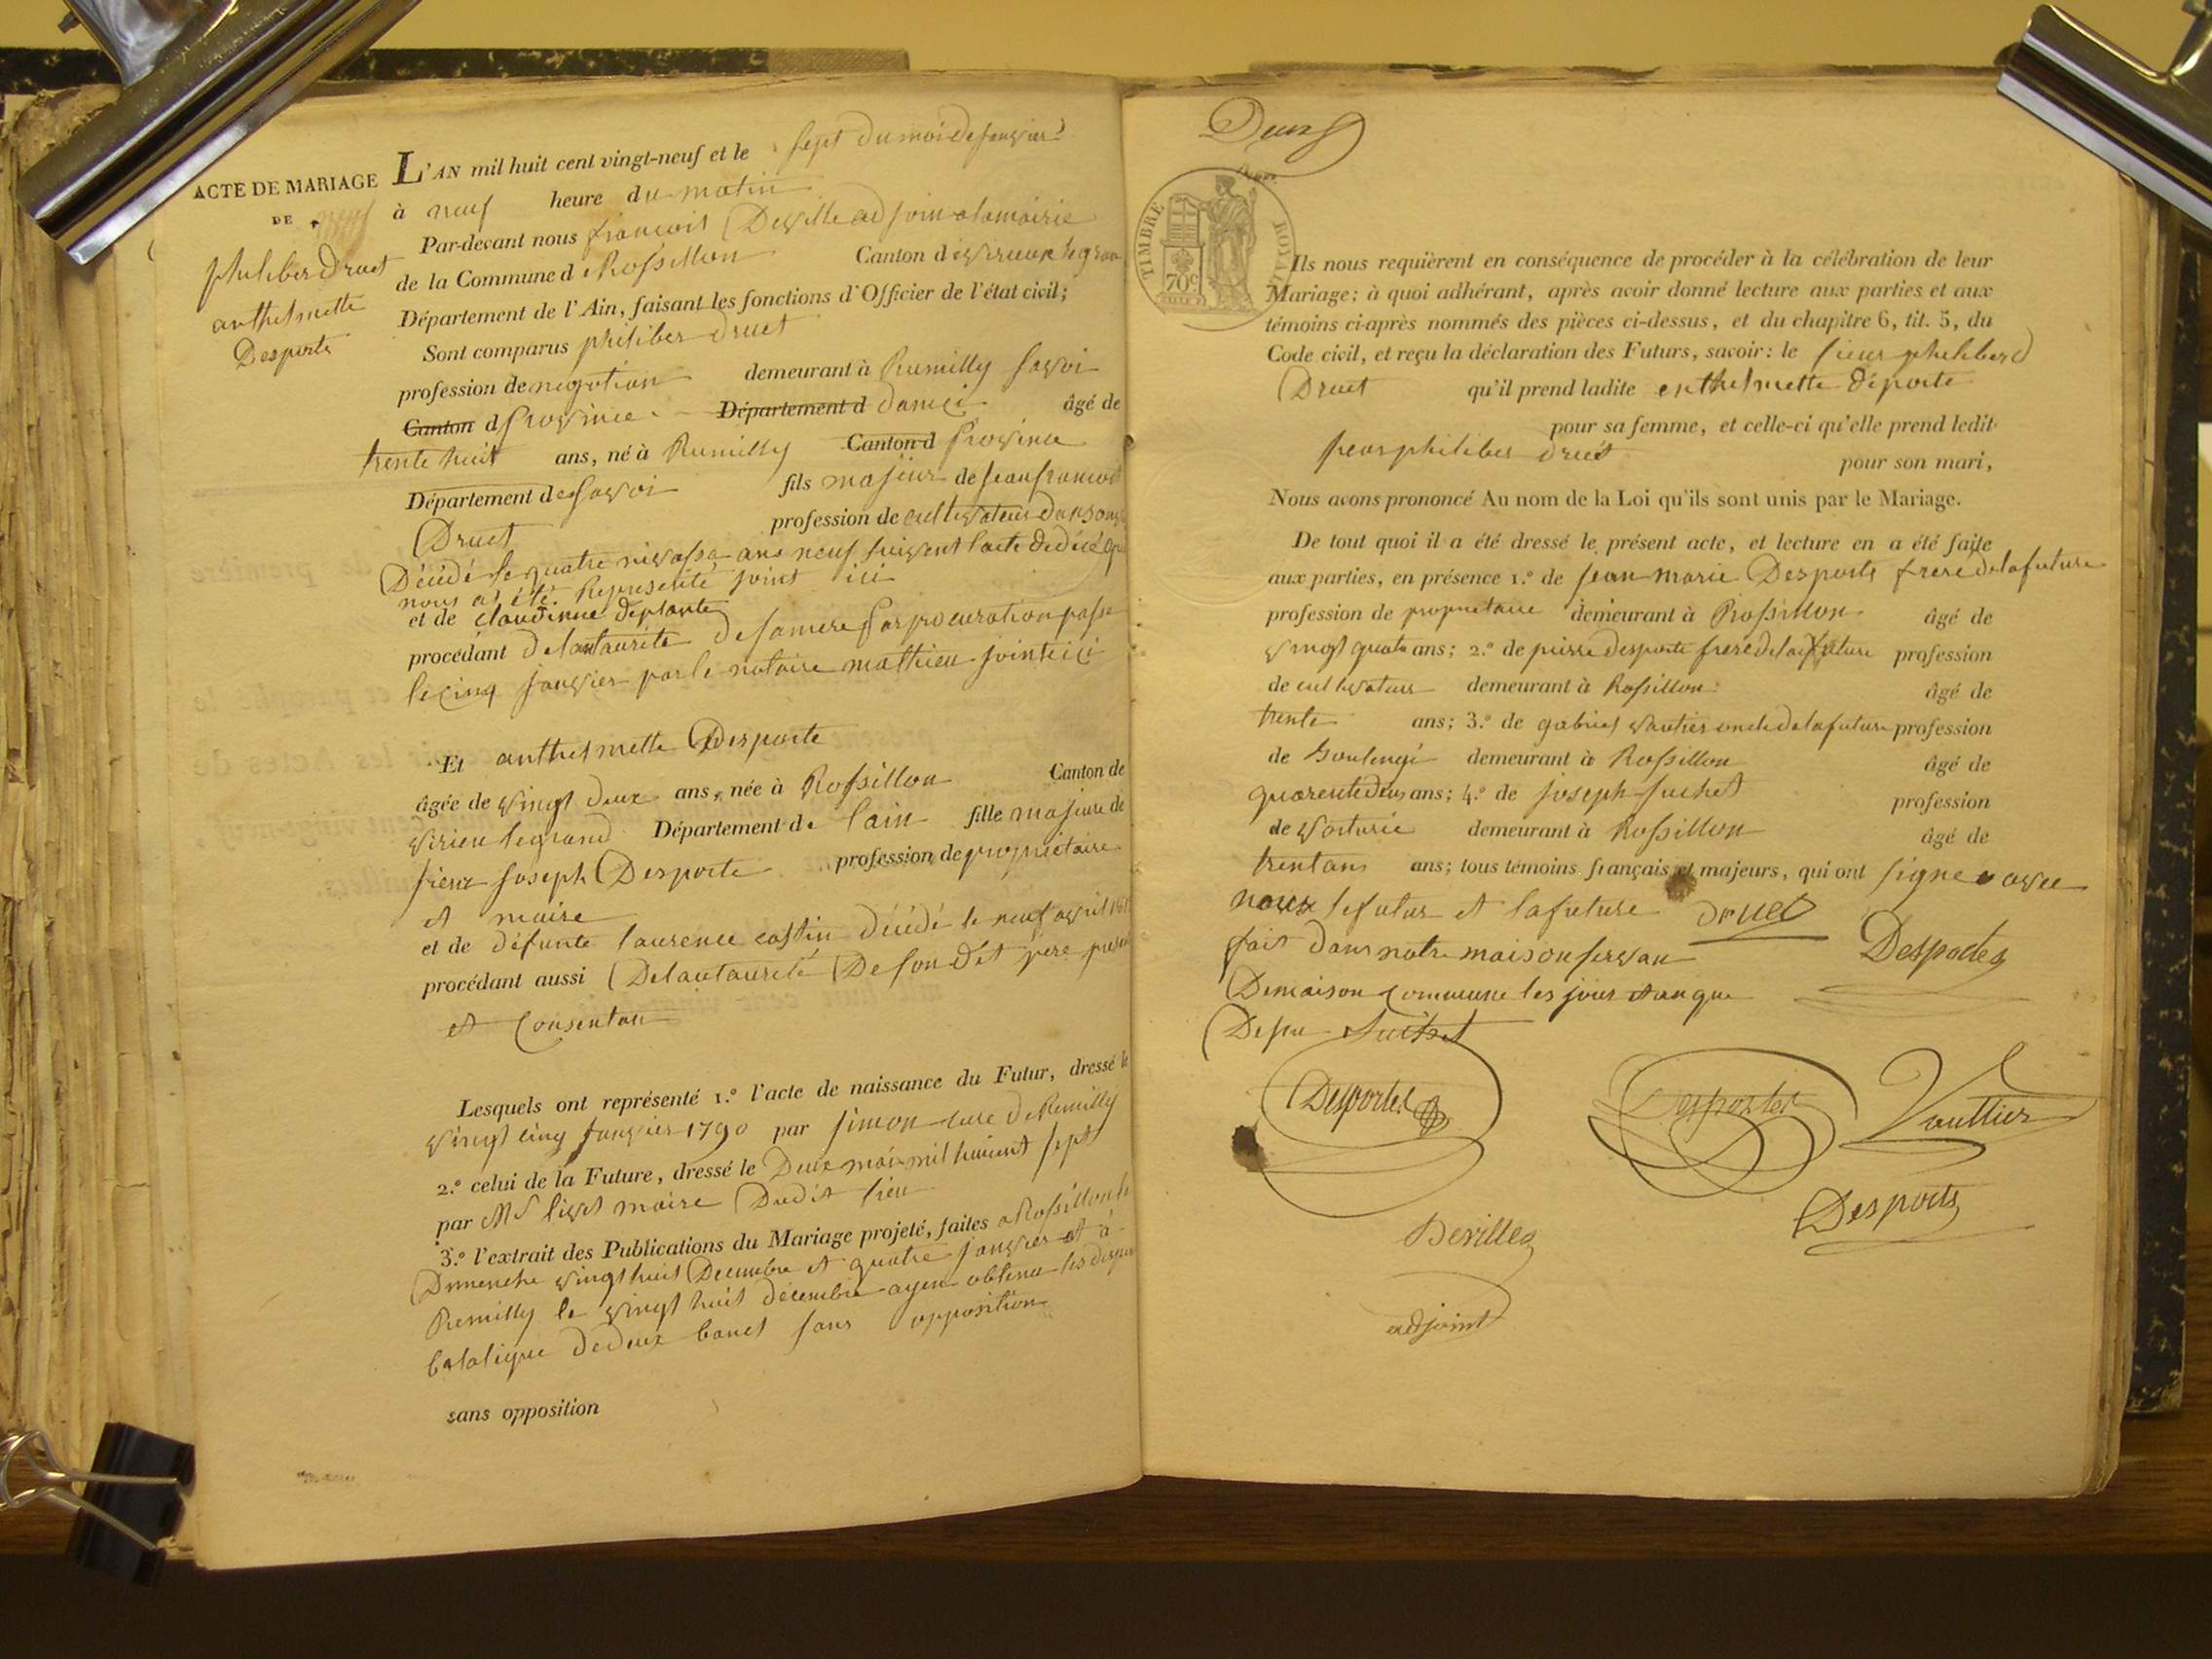 ACTE DE MARIAGE
DE
philiber Druet
anthelmette
Desporte
L'AN mil huit cent vingt-neuf et le sept du moi de janvier
à neuf heure du matin
Par-devant nous françois Deville adjoin a la mairie
de la Commune d Rossillon Canton d
Département de l'Ain, faisant les fonctions d'Officier de l'état civil;
Sont comparus philiber druet
profession de negotian demeurant à Rumilly savoi
Canton d province Département d âgé de
trente huit ans, né à Rumilly Canton d province
Département de savoi fils majeur de jean françois
Druet profession de cultivateur
Décédé le quatre nivosse ans neuf suivent l'acte de décé
nous a été representé joint ici
et de claudinne deplante
procédant de lautaurité de sa mere par procuration
le cinq janvier par le notaire mathieu joint ici
Et anthelmette Desporte
âgée de vingt deux ans, née à Rossillon Canton de
virieu le grand Département de lain fille majeure de
sieur joseph Desporte profession de proprietaire
et maire
et de défunte laurence décédé le neuf avril
procédant aussi De lautaurité De son dit père
et consentan
Lesquels ont représenté 1.º l'acte de naissance du Futur, dressé le
vingt cinq janvier 1790 par simon cure de Rumilly
2.º celui de la Future, dressé le Deux mai mil huicent sept
par Mr maire Dudit lieu
3.º l'extrait des Publications du Mariage projeté, faites a Rossillon le
Dimenche vingt huit Decembre et quatre janvier et à
Rumilly le vingt huit décembre ayen obtenu les
de deux banct sans opposition
sans opposition
Deux
TIMBRE ROYAL
70c
Ils nous requièrent en conséquence de procéder à la célébration de leur
Mariage; à quoi adhérant, après avoir donné lecture aux parties et aux
témoins ci-après nommés des pièces ci-dessus, et du chapitre 6, tit. 5, du
Code civil, et reçu la déclaration des Futurs, savoir: le sieur philiberd
Druet qu'il prend ladite enthelmette déporte
pour sa femme, et celle-ci qu'elle prend ledit
philiber druet pour son mari,
Nous avons prononcé Au nom de la Loi qu'ils sont unis par le Mariage.
De tout quoi il a été dressé le présent acte, et lecture en a été faite
aux parties, en présence 1.º de jean marie Desporte frere de la future
profession de propriétaire demeurant à Rossillon âgé de
vingt quatre ans; 2.º de pierre desporte frere de la future profession
de cultivateur demeurant à Rossillon âgé de
trente ans; 3.º de gabriel vautier oncle de la future profession
de boulengé demeurant à Rossillon âgé de
quarente deux ans; 4.º de joseph juihet profession
de voiturié demeurant à Rossillon âgé de
trentans ans; tous témoins français et majeurs, qui ont signe avec
nous le futur et la future druet
fait dans notre maison servan Desportes
De maison commune les jour et an que
Dessu Juihet
Desportes Desportes Vauttier
Desports
Deville
adjoint